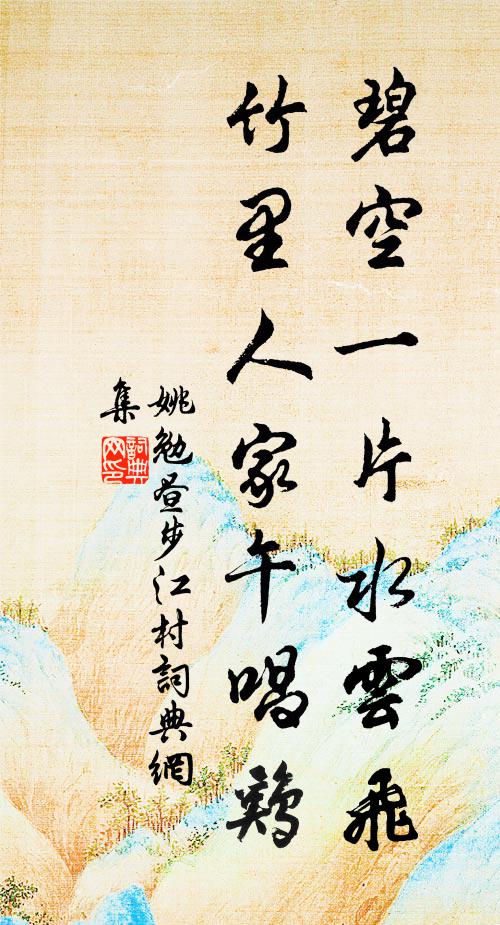 碧空一片水雲飛
竹里人家午唱鷄
姚勉昼步江村詞典網
集
詞典网印